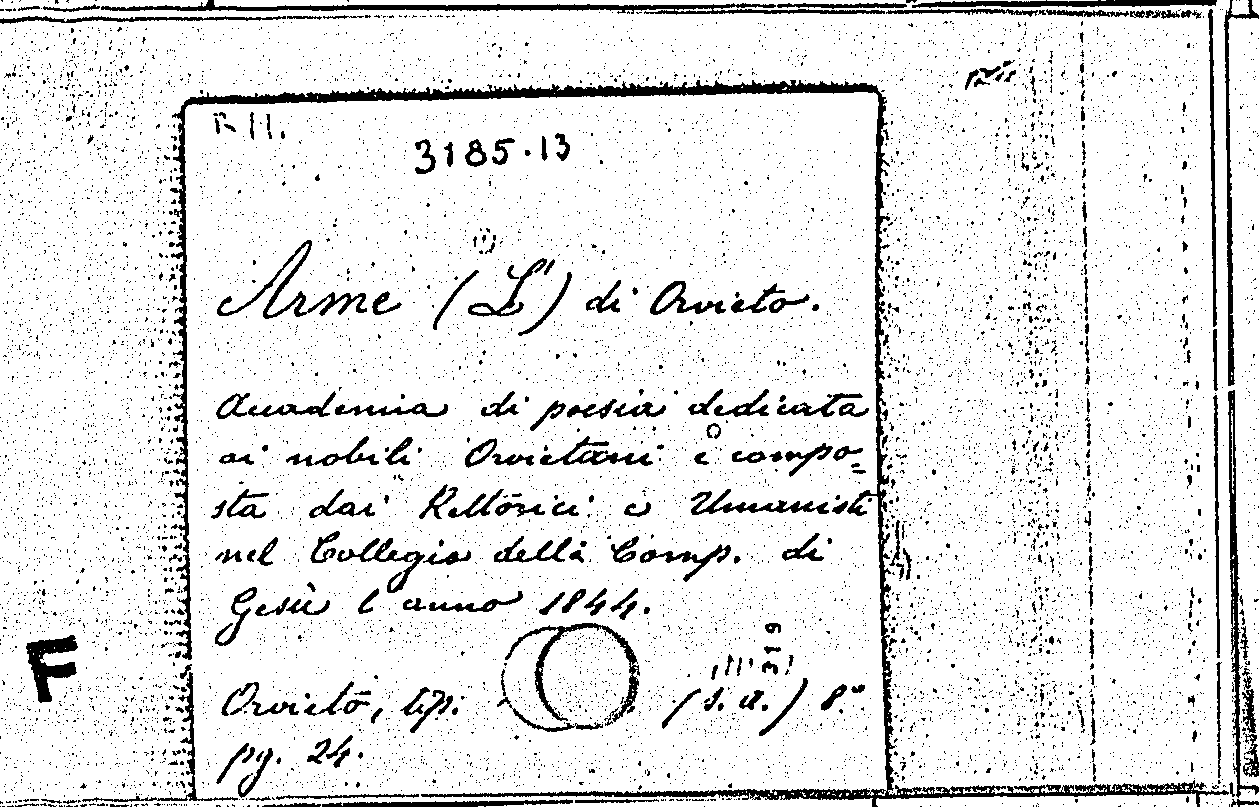 R 11.
3185.13
Arme (L') di Orvieto.
Accademia di poesia dedicata
ai nobili Orvietani e compo=
sta dai Rettorici e Umanisti
nel Collegio della Comp. di
Gesù l'anno 1844.
F
319
Orvieto, tip. (s. a.) 8.°
pg. 24.